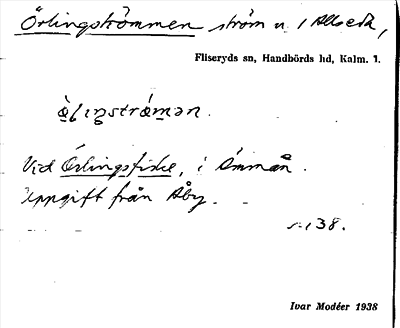 Örlingströmmen ström n. i Allseda,
Fliseryds sn, Handbörds hd, Kalm. l.
Vid Örlingsfiske, i Ämmån.
Uppgift från Åby.
38.
Ivar Modéer 1938